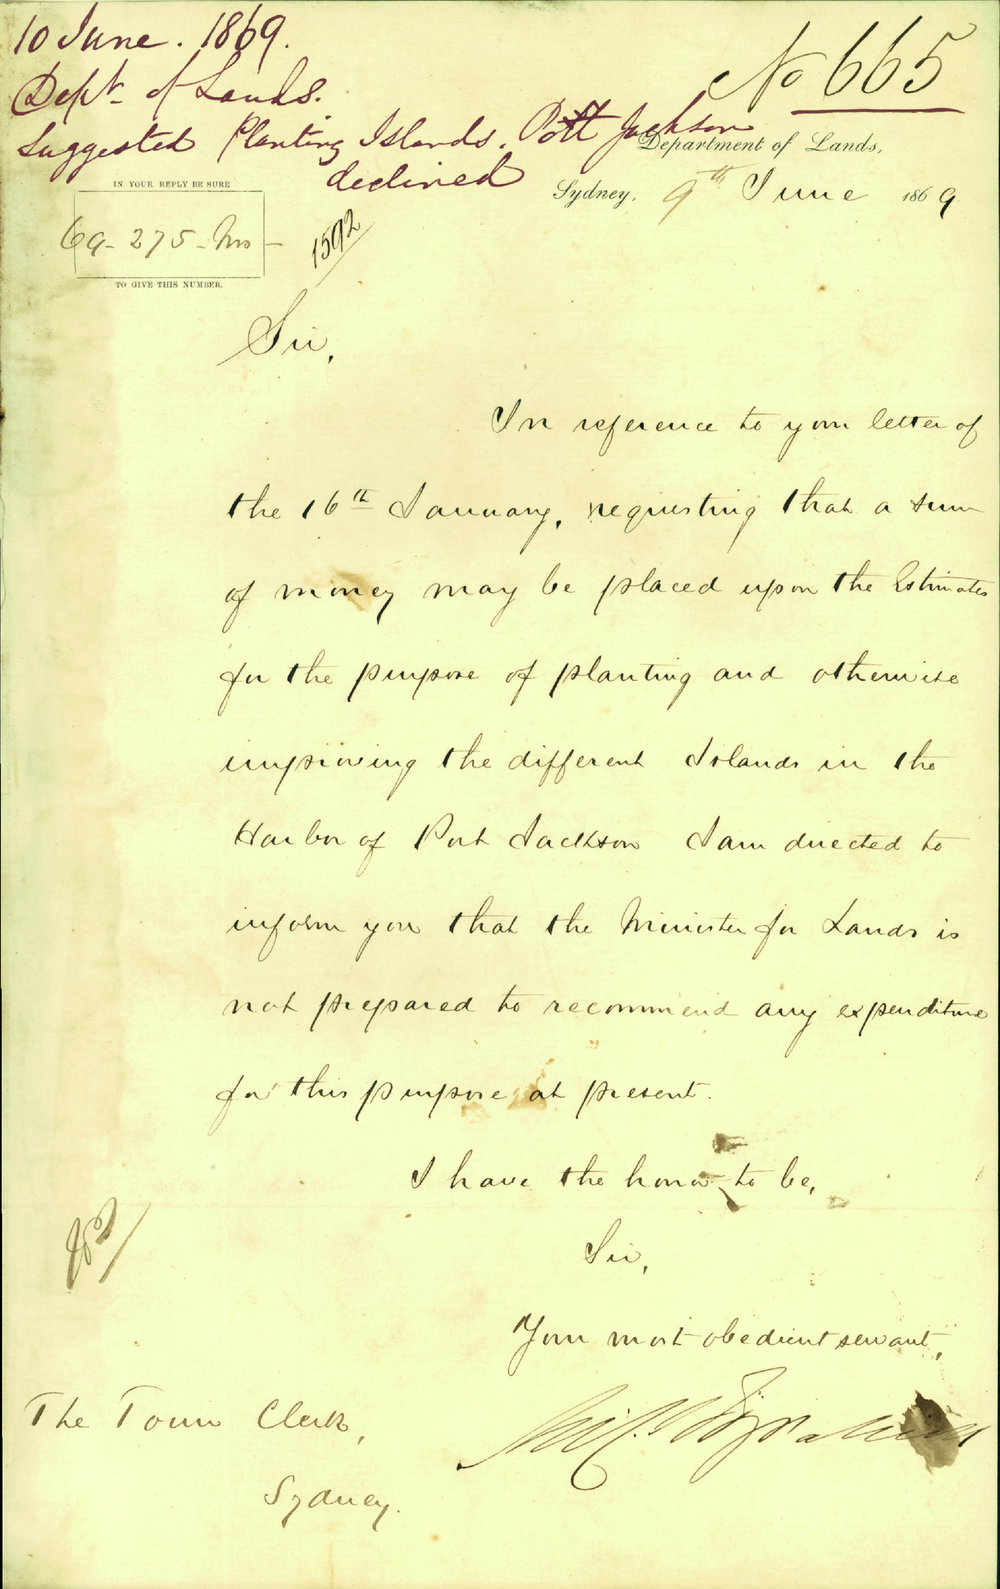 10 June. 1869.
Dept. of Lands.
Suggested Planting Islands. Port Jackson
declined
No 665
Department of Lands,
Sydney, 9th June 1869
IN YOUR REPLY BE SURE
69-275-Mis
TO GIVE THIS NUMBER.
1592
Sir,
In reference to your letter of
the 16th January, requesting that a sum
of money may be placed upon the Estimates
for the purpose of planting and otherwise
improving the different Islands in the
Harbor of Port Jackson I am directed to
inform you that the Minister for Lands is
not prepared to recommend any expenditure
for this purpose at present.
I have the honor to be,
Sir,
Your most obedient servant,
Mic. Fitzpatrick
The Town Clerk,
Sydney.